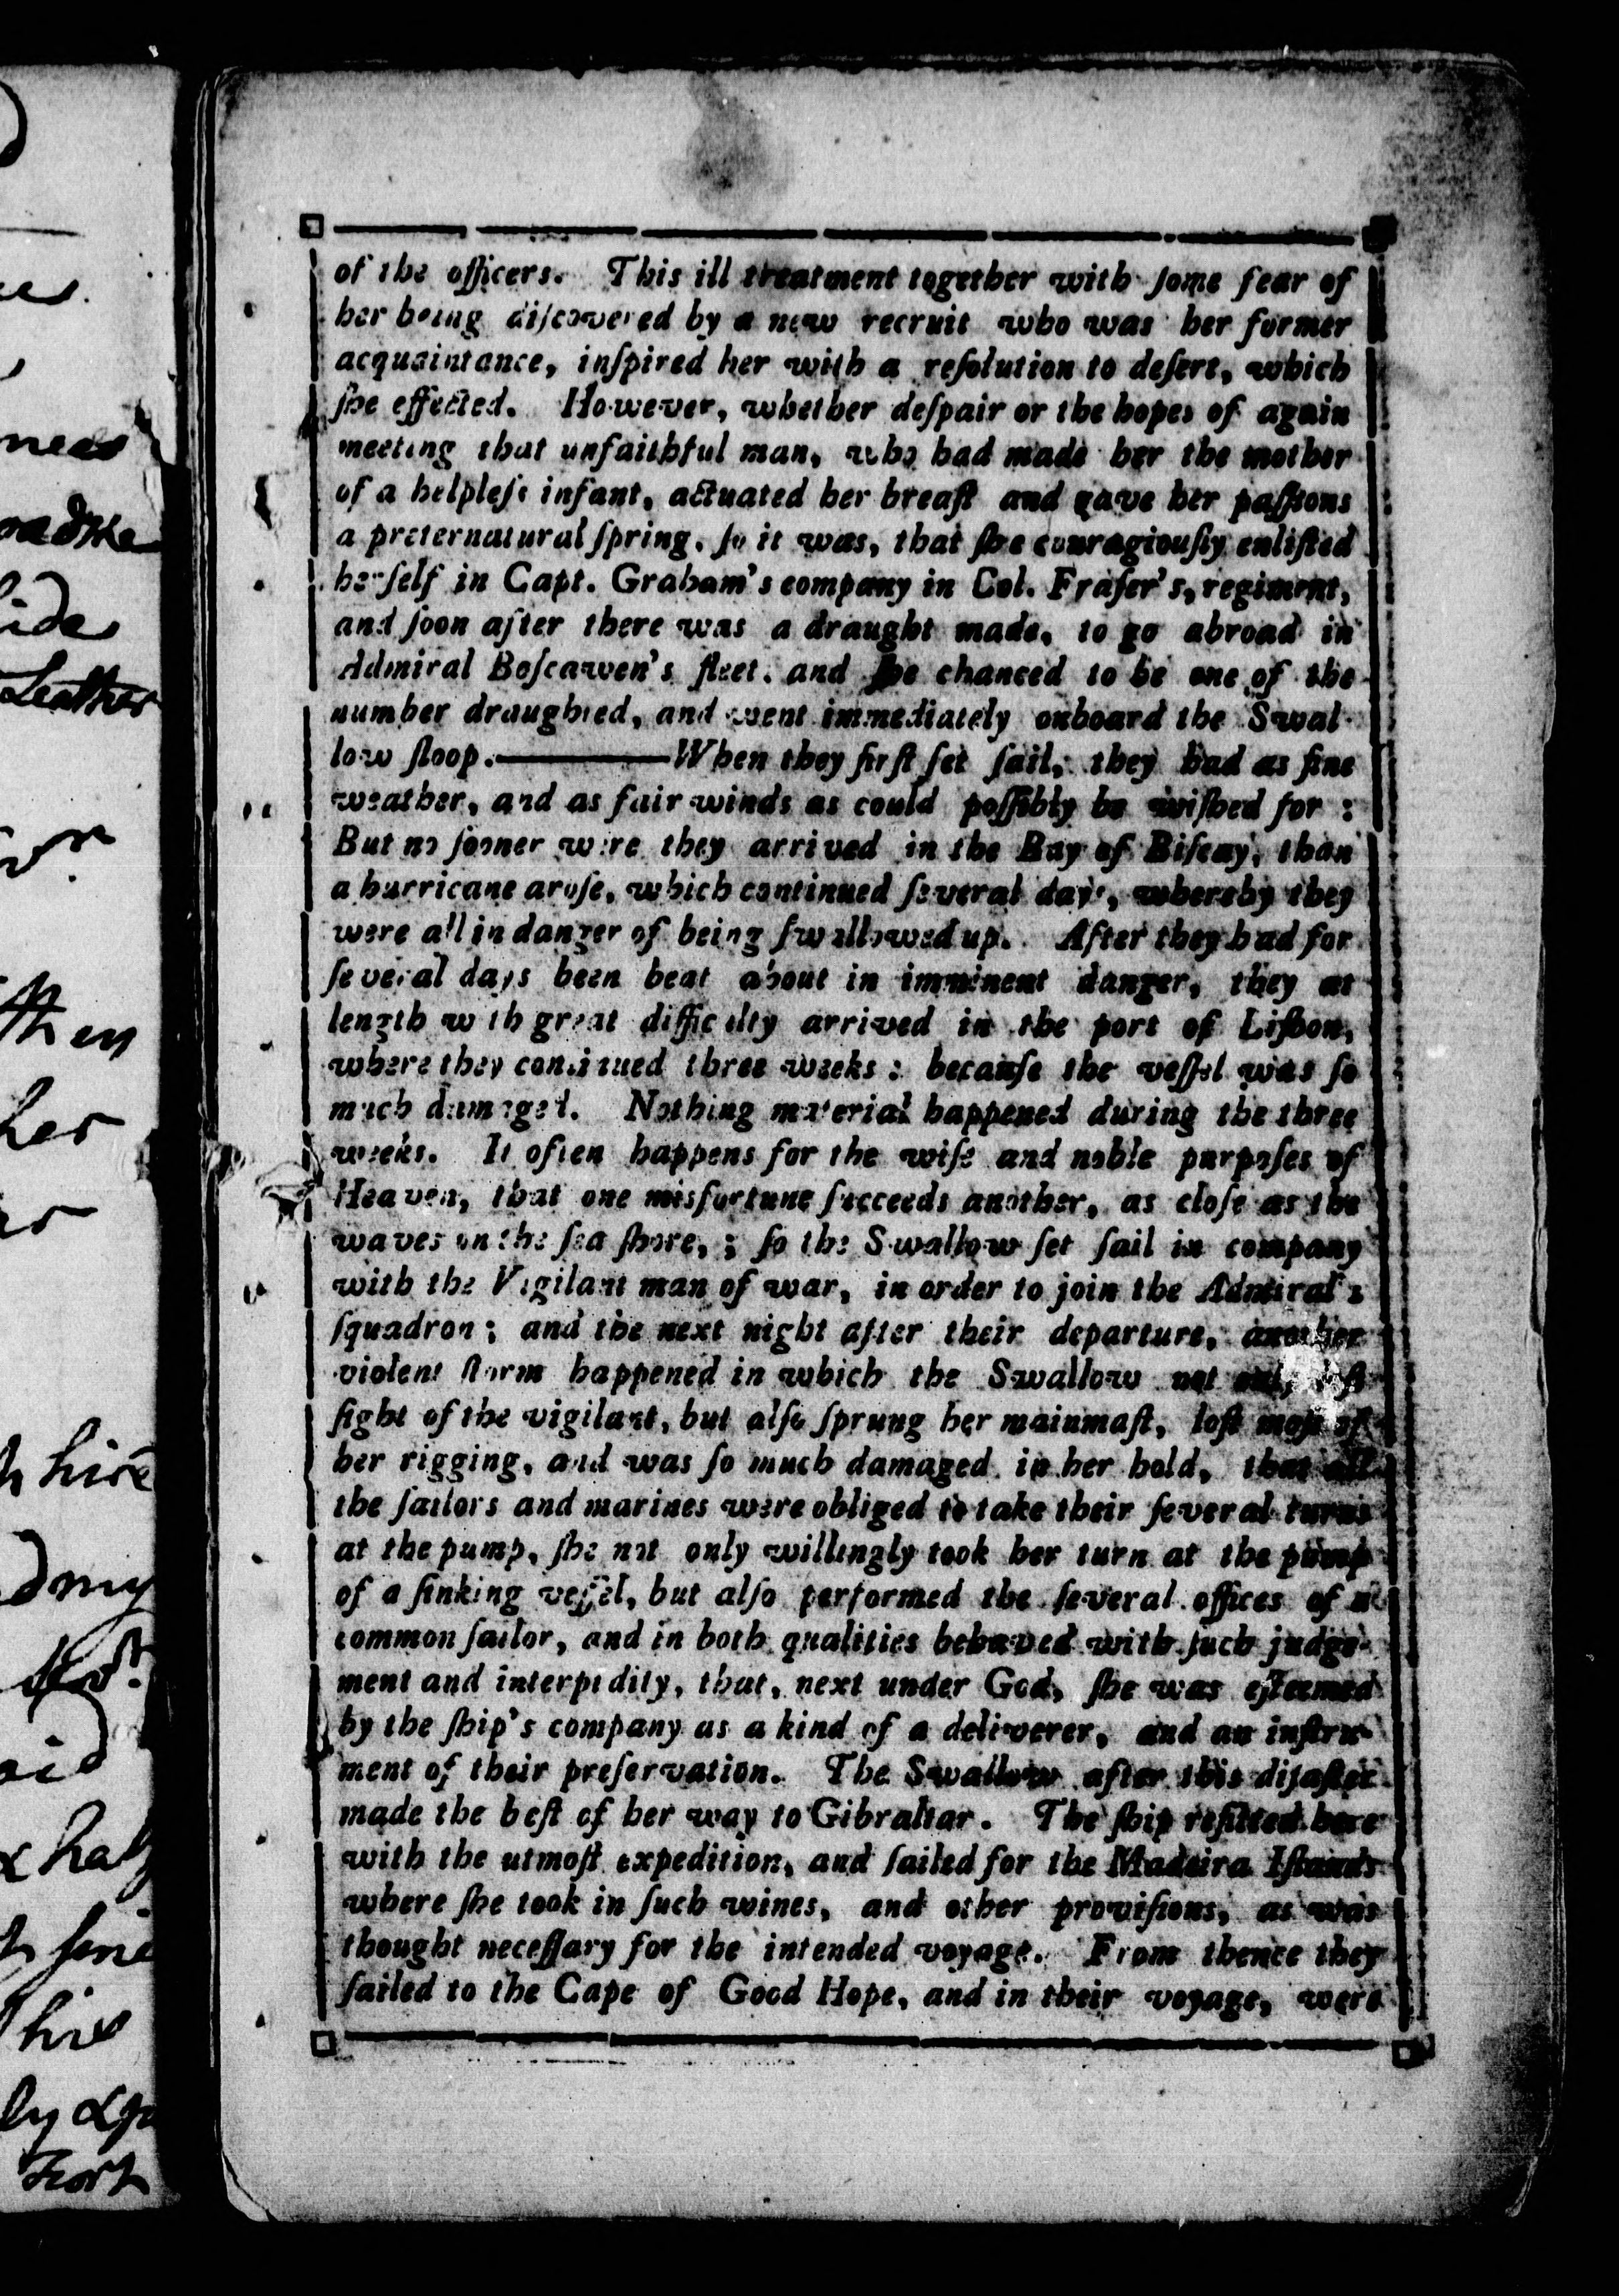 of the officers. This ill treatment together with ſome fear of
her being diſcovered by a new recruit who was her former
acquaintance, inſpired her with a reſolution to deſert, which
ſhe effected. However, whether deſpair or the hopes of again
meeting that unfaithful man, who had made her the mother
of a helpleſs infant, actuated her breaſt and gave her paſſions
a preternatural ſpring, ſo it was, that ſhe couragiouſly enliſted
herſelf in Capt. Graham's company in Col. Fraſer's, regiment,
and ſoon after there was a draught made, to go abroad in
Admiral Boſcawen's fleet. and ſhe chanced to be one of the
number draughted, and went immediately onboard the Swal-
low ſloop.————When they firſt ſet ſail, they had as fine
weather, and as fair winds as could poſſibly be wiſhed for :
But no ſooner were they arrived in the Bay of Biſcay, than
a hurricane aroſe, which continued ſeveral days, whereby they
were all in danger of being ſwallowed up. After they had for
ſeveral days been beat about in imminent danger, they at
length with great difficulty arrived in the port of Liſbon,
where they continued three weeks : becauſe the veſſel was ſo
much damaged. Nothing material happened during the three
weeks. It often happens for the wiſe and noble purpoſes of
Heaven, that one misfortune ſucceeds another, as cloſe as the
waves on the ſea ſhore, ; ſo the Swallow ſet ſail in company
with the Vigilant man of war, in order to join the Admiral's
ſquadron ; and the next night after their departure, another
violent ſtorm happened in which the Swallow not
ſight of the vigilant, but alſo ſprung her mainmaſt, loſt moſt of
her rigging, and was ſo much damaged in her hold, that all
the ſailors and marines were obliged to take their ſeveral turns
at the pump, ſhe not only willingly took her turn at the pump
of a ſinking veſſel, but alſo performed the ſeveral offices of a
common ſailor, and in both qualities behaved with ſuch judge-
ment and interpidity, that, next under God, ſhe was eſteemed
by the ſhip's company as a kind of a deliverer, and an inſtru-
ment of their preſervation. The Swallow after this diſaſter
made the beſt of her way to Gibraltar. The ſhip refitted here
with the utmoſt expedition, and ſailed for the Madeira Iſlands
where ſhe took in ſuch wines, and other proviſions, as was
thought neceſſary for the intended voyage. From thence they
ſailed to the Cape of Good Hope, and in their voyage, were